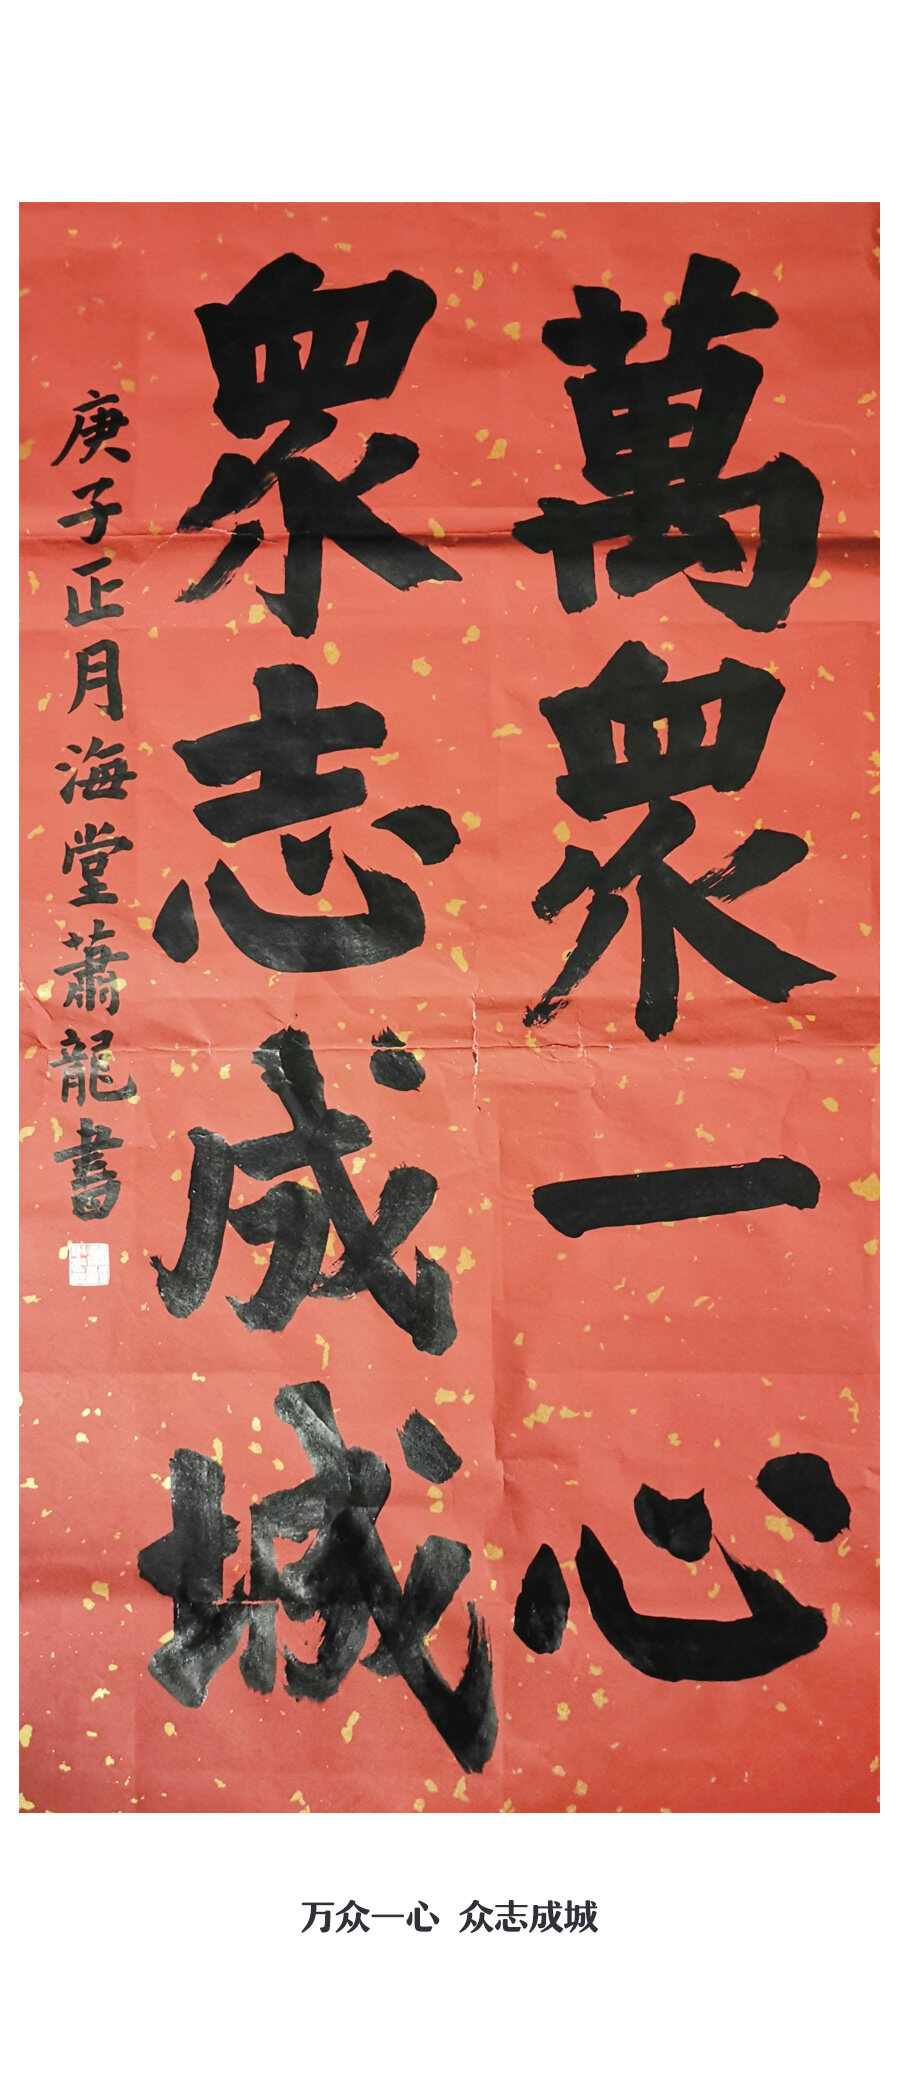 萬眾一心
眾志成城
庚子正月海堂蕭龍書
万众一心 众志成城